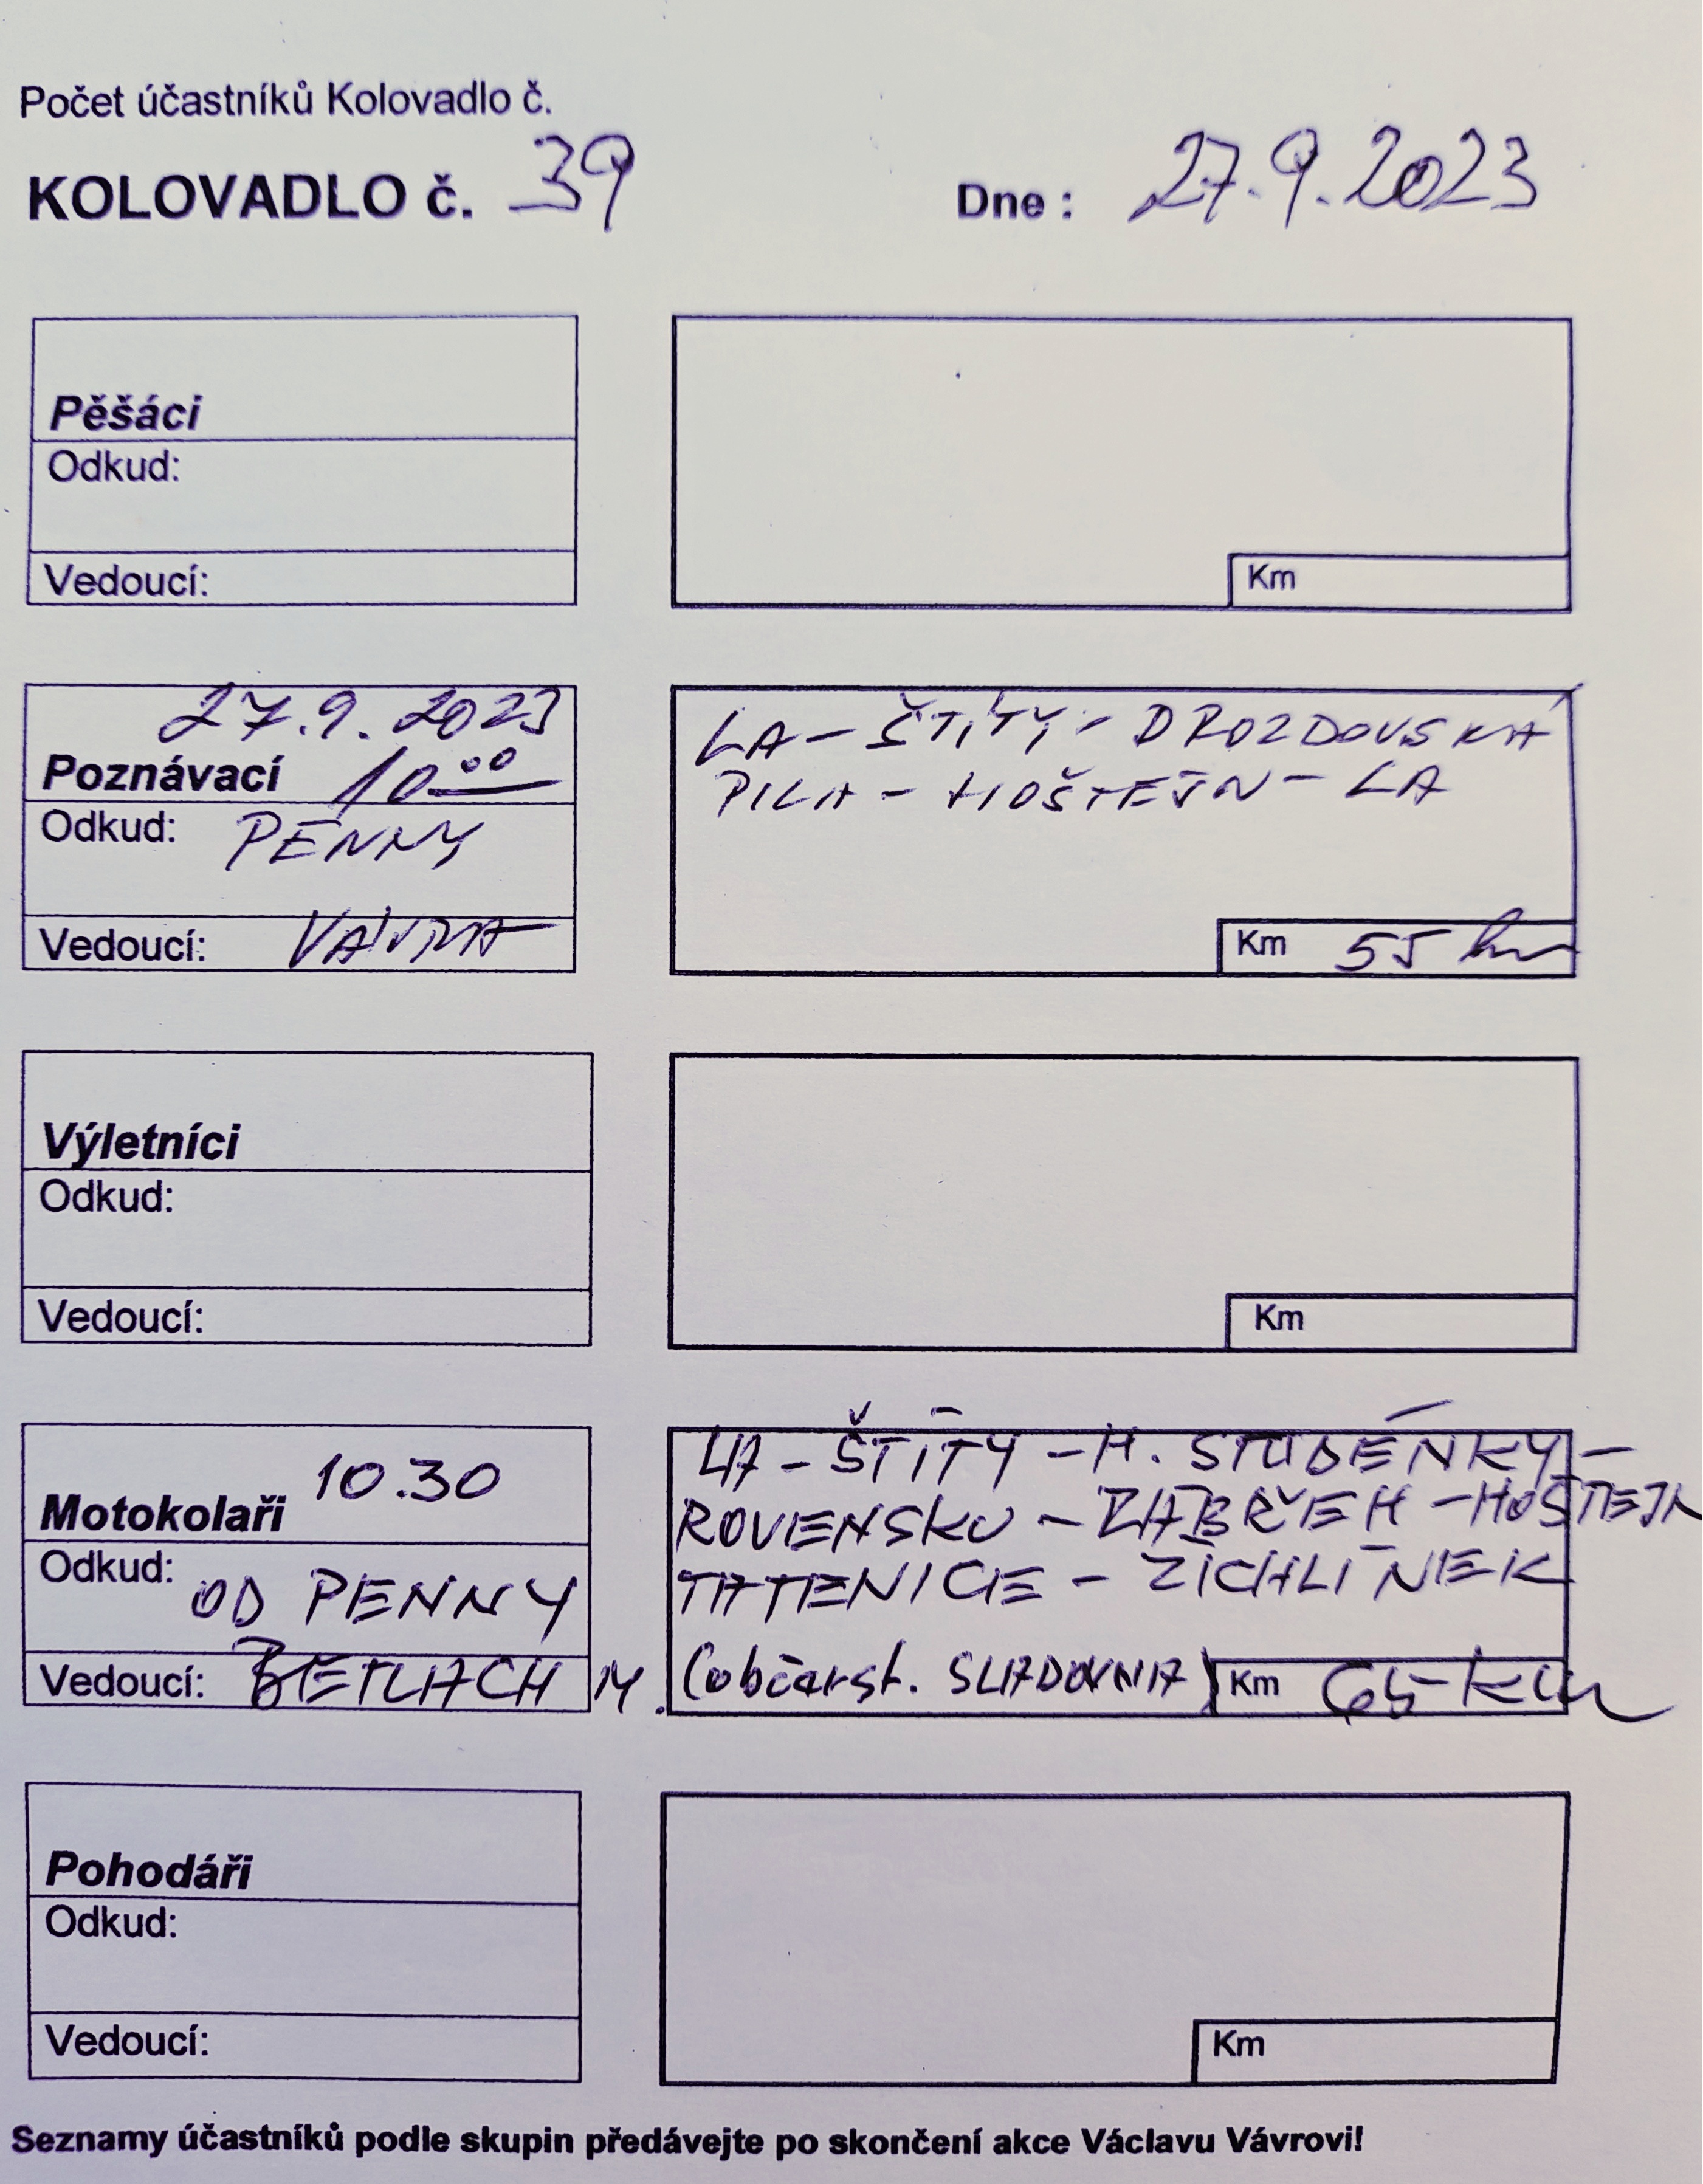 Počet účastníků Kolovadlo č.
KOLOVADLO č. 39 Dne : 27.9.2023
Pěšáci
Odkud:
Vedoucí:
Km
27.9.2023
Poznávací 10⁰⁰
Odkud: PENNY
Vedoucí: VÁVRA
LA - ŠTÍTY - DROZDOVSKÁ
PILA - HOŠTEJN - LA
Km 55 km
Výletníci
Odkud:
Vedoucí:
Km
10.30
Motokolaři
Odkud: OD PENNY
Vedoucí: BETLACH M.
LA - ŠTÍTY - H. STUDÉNKY -
ROVENSKO - ZÁBŘEH - HOŠTEJN
TATENICE - ZICHLÍNEK
(občerst. SLADOVNA)
Km 65 km
Pohodáři
Odkud:
Vedoucí:
Km
Seznamy účastníků podle skupin předávejte po skončení akce Václavu Vávrovi!